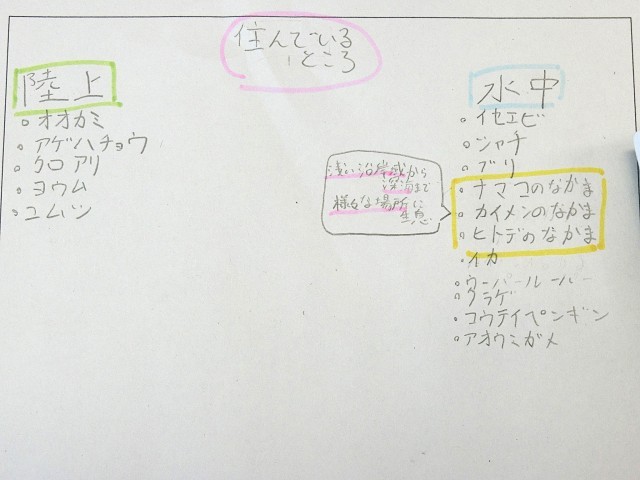 住んでいる
ところ
陸上
・オオカミ
・アゲハチョウ
・クロアリ
・ヨウム
・ユムシ
水中
・イセエビ
・シャチ
・ブリ
・ナマコのなかま
・カイメンのなかま
・ヒトデのなかま
・イカ
・ウーパールーパー
・クラゲ
・コウテイペンギン
・アオウミガメ
浅い沿岸域から
深海まで
様々な場所に
生息